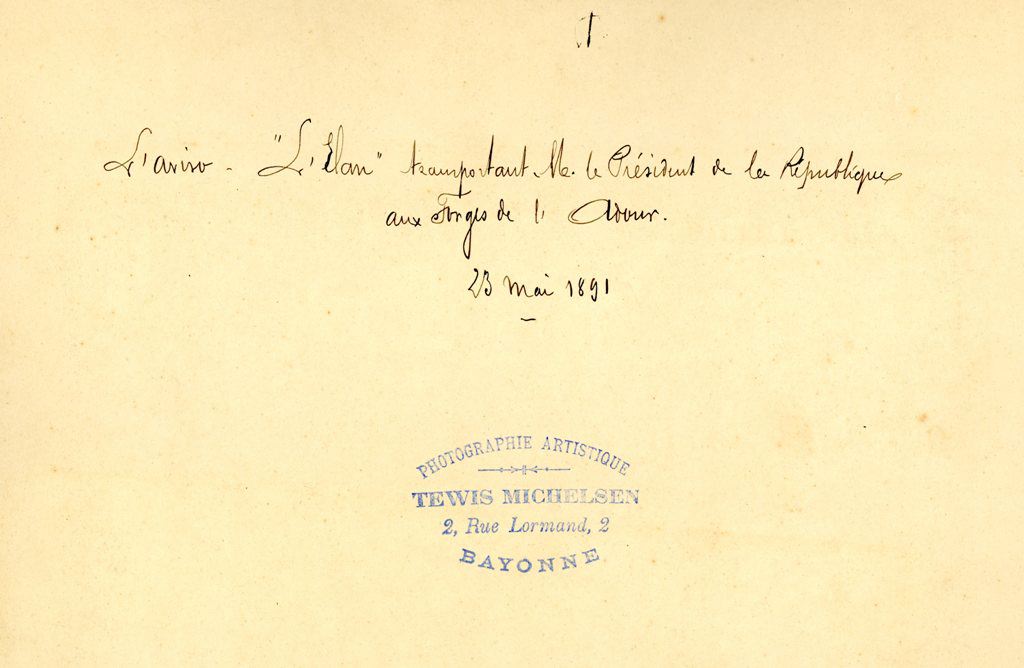 L'aviso - "L'Elan" transportant M. le Président de la République
aux Forges de l' Adour.
23 Mai 1891
PHOTOGRAPHIE ARTISTIQUE
TEWIS MICHELSEN
2, Rue Lormand, 2
BAYONNE